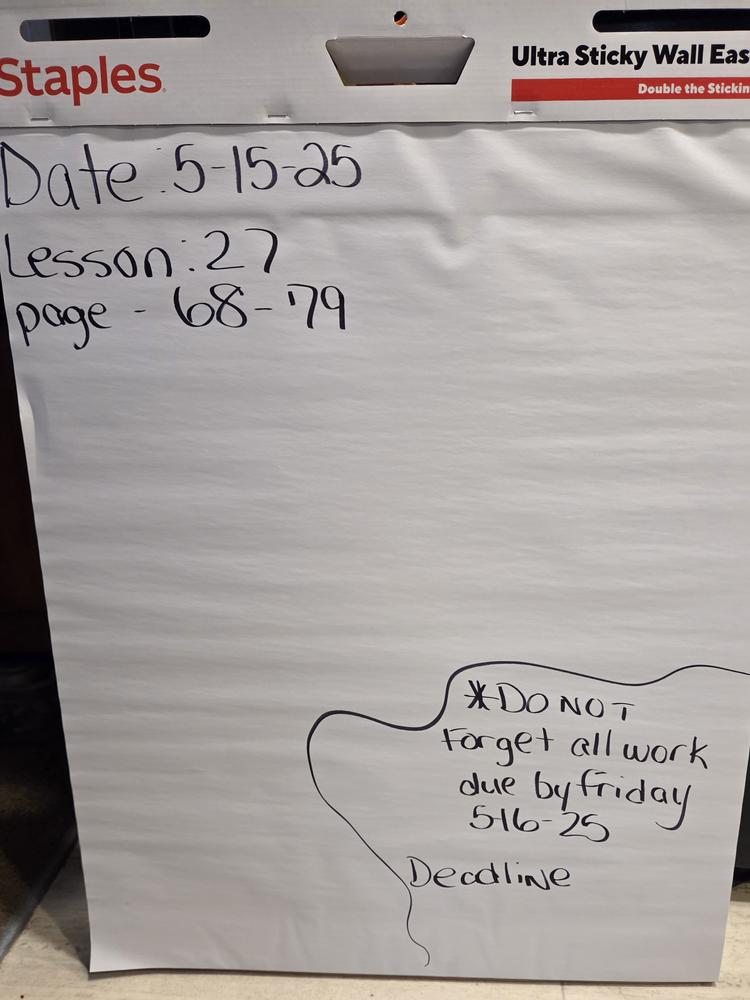 Staples
Ultra Sticky Wall Eas
Double the Stickin
Date : 5-15-25
Lesson : 27
page - 68-79
*DO NOT
Forget all work
due by friday
516-25
Deadline